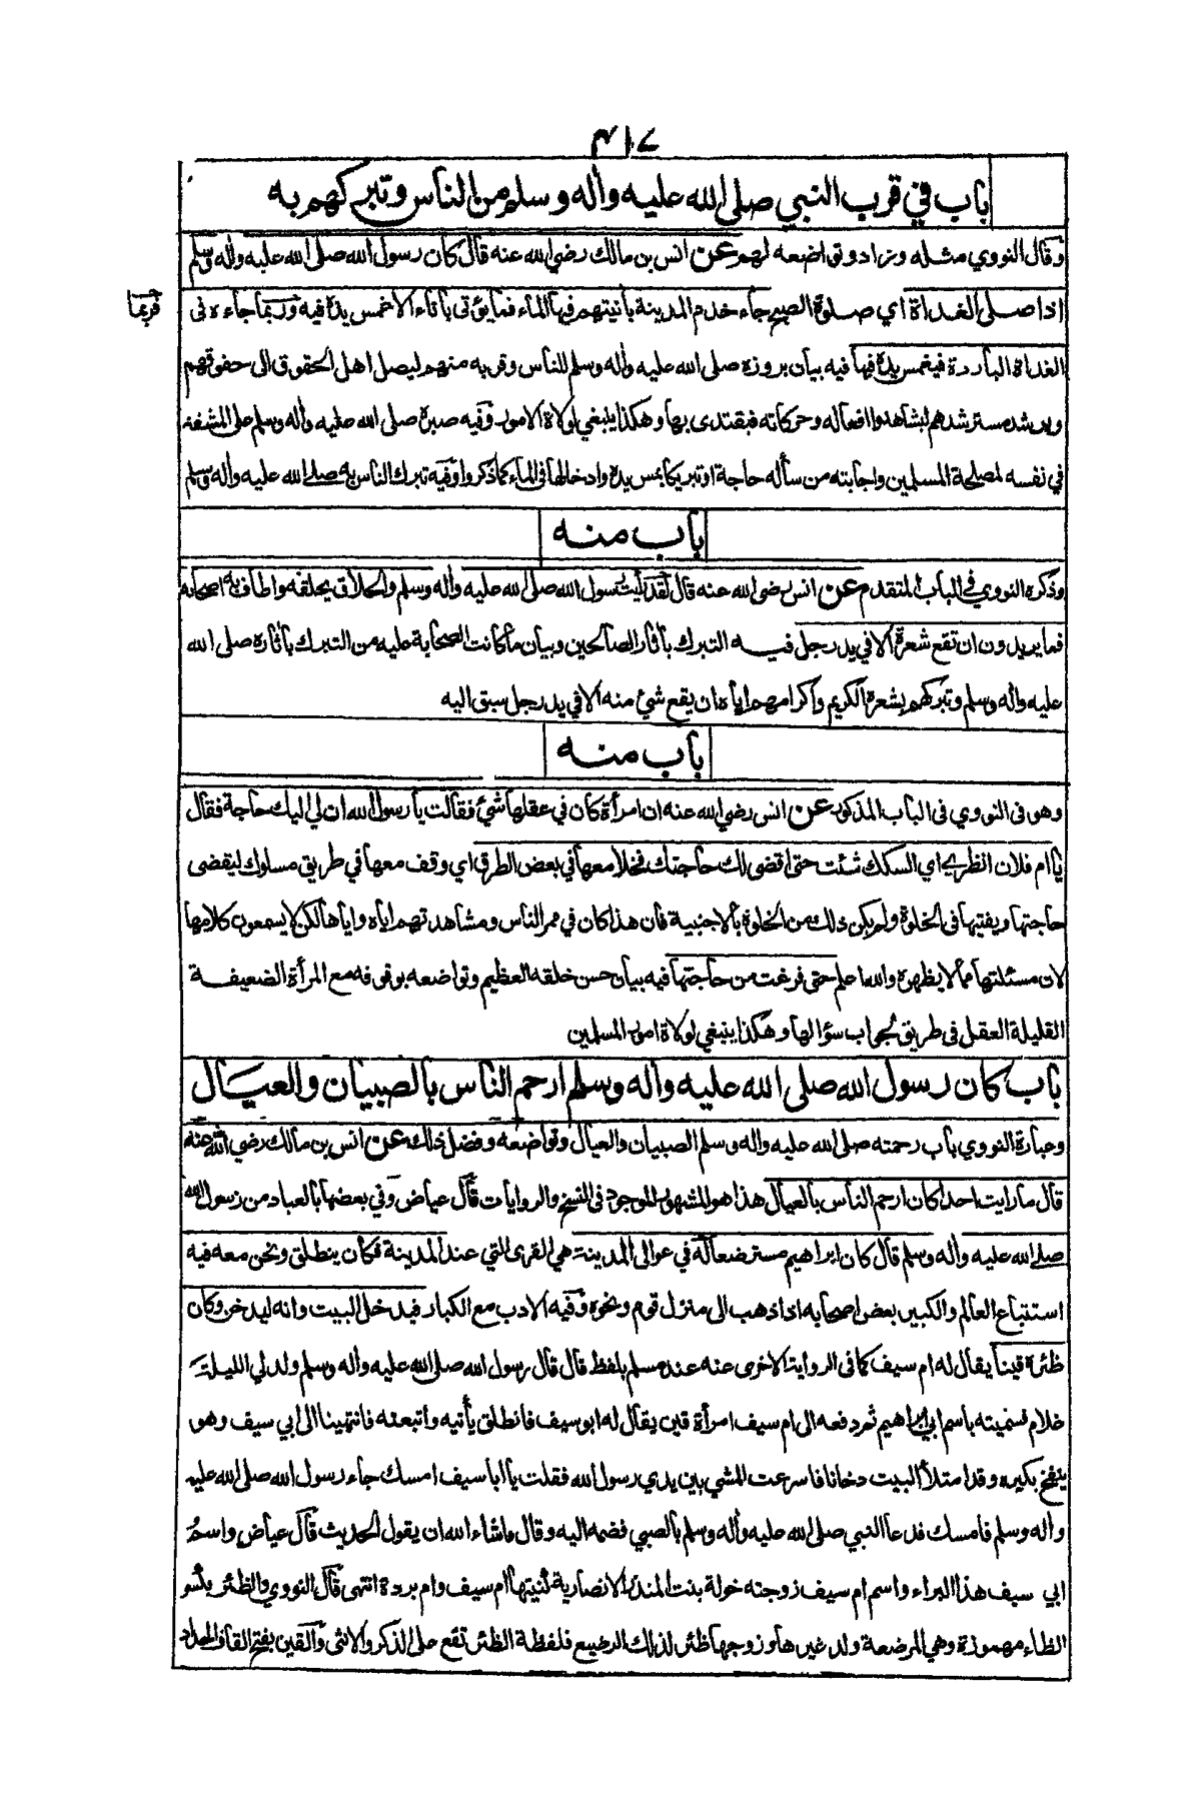 ٤١٧
باب في قرب النبي صلى الله عليه وأله وسلم من الناس وتبركهم به
وقال النووي مثله وزاد وتواضعه لهم عن انس بن مالك رضي الله عنه قال كان رسول الله صلى الله عليه وأله وسلم
اذا صلى الغداة اي صلوة الصبح جاء خدم المدينة بأنيتهم فيها الماء فما يؤتى بأناء الا غمس يده فيه وربما جاءه في
فربما
الغداة الباردة فيغمس يده فيها فيه بيان بروزه صلى الله عليه وأله وسلم للناس وقربه منهم ليصل اهل الحقوق الى حقوقهم
ويرشد مسترشدهم ليشاهدوا افعاله وحركاته فيقتدى بها وهكذا ينبغي لولاة الامور وفيه صبره صلى الله عليه وأله وسلم على المشقة
في نفسه لمصلحة المسلمين واجابته من سأله حاجة او تبريكا بمس يده وادخالها في الماء كما ذكروا وفيه تبرك الناس به صلى الله عليه وأله وسلم
باب منه
وذكره النووي في الباب المتقدم عن انس رضي الله عنه قال لقد رأيت رسول الله صلى الله عليه وأله وسلم والحلاق يحلقه واطاف به اصحابه
فما يريدون ان تقع شعرة الا في يد رجل فيه التبرك بأثار الصالحين وبيان ما كانت الصحابة عليه من التبرك بأثاره صلى الله
عليه وأله وسلم وتبركهم بشعره الكريم واكرامهم اياه ان يقع شئ منه الا في يد رجل سبق اليه
باب منه
وهو في النووي في الباب المذكور عن انس رضي الله عنه ان امرأة كان في عقلها شئ فقالت يا رسول الله ان لي اليك حاجة فقال
يا ام فلان انظري اي السكك شئت حتى اقضى لك حاجتك فخلا معها في بعض الطرق اي وقف معها في طريق مسلوك ليقضى
حاجتها ويفتيها في الخلوة ولم يكن ذلك من الخلوة بالاجنبية فان هذا كان في ممر الناس ومشاهدتهم اياه واياها لكن لا يسمعون كلامها
لان مسئلتها مما لا يظهره والله اعلم حتى فرغت من حاجتها فيه بيان حسن خلقه العظيم وتواضعه بوقوفه مع المرأة الضعيفة
القليلة العقل في طريق لجواب سؤالها وهكذا ينبغي لولاة امور المسلمين
باب كان رسول الله صلى الله عليه وأله وسلم ارحم الناس بالصبيان والعيال
وعبارة النووي باب رحمته صلى الله عليه واله وسلم الصبيان والعيال وتواضعه وفضل ذلك عن انس بن مالك رضي الله عنه
قال ما رايت احدا كان ارحم الناس بالعيال هذا هو المشهور الموجود في النسخ والروايات قال عياض وفي بعضها بالعباد من رسول الله
صلى الله عليه وأله وسلم قال كان ابراهيم مسترضعا له في عوالي المدينة هي القرى التي عند المدينة فكان ينطلق ونحن معه فيه
استتباع العالم والكبير بعض اصحابه اذا ذهب الى منزل قوم ونحوه وفيه الادب مع الكبار فيدخل البيت وانه ليدخن وكان
ظئره قينا يقال له ام سيف كما في الرواية الاخرى عنه عند مسلم بلفظ قال قال رسول الله صلى الله عليه وأله وسلم ولد لي الليلة
غلام فسميته باسم ابي ابراهيم ثم دفعه الى ام سيف امرأة قين يقال له ابو سيف فانطلق يأتيه واتبعته فانتهينا الى ابي سيف وهو
ينفخ بكيره وقد امتلأ البيت دخانا فاسرعت المشي بين يدي رسول الله فقلت يا ابا سيف امسك جاء رسول الله صلى الله عليه
وأله وسلم فامسك فدعا النبي صلى الله عليه وأله وسلم بالصبي فضمه اليه وقال ماشاء الله ان يقول الحديث قال عياض واسم
ابي سيف هذا البراء واسم ام سيف زوجته خولة بنت المنذر الانصارية كنيتها ام سيف وام بردة انتهى قال النووي والظئر بكسر
الظاء مهموزة وهي المرضعة ولد غيرها وزوجها ظئر لذلك الرضيع فلفظة الظئر تقع على الذكر والانثى والقين بفتح القاف الحداد